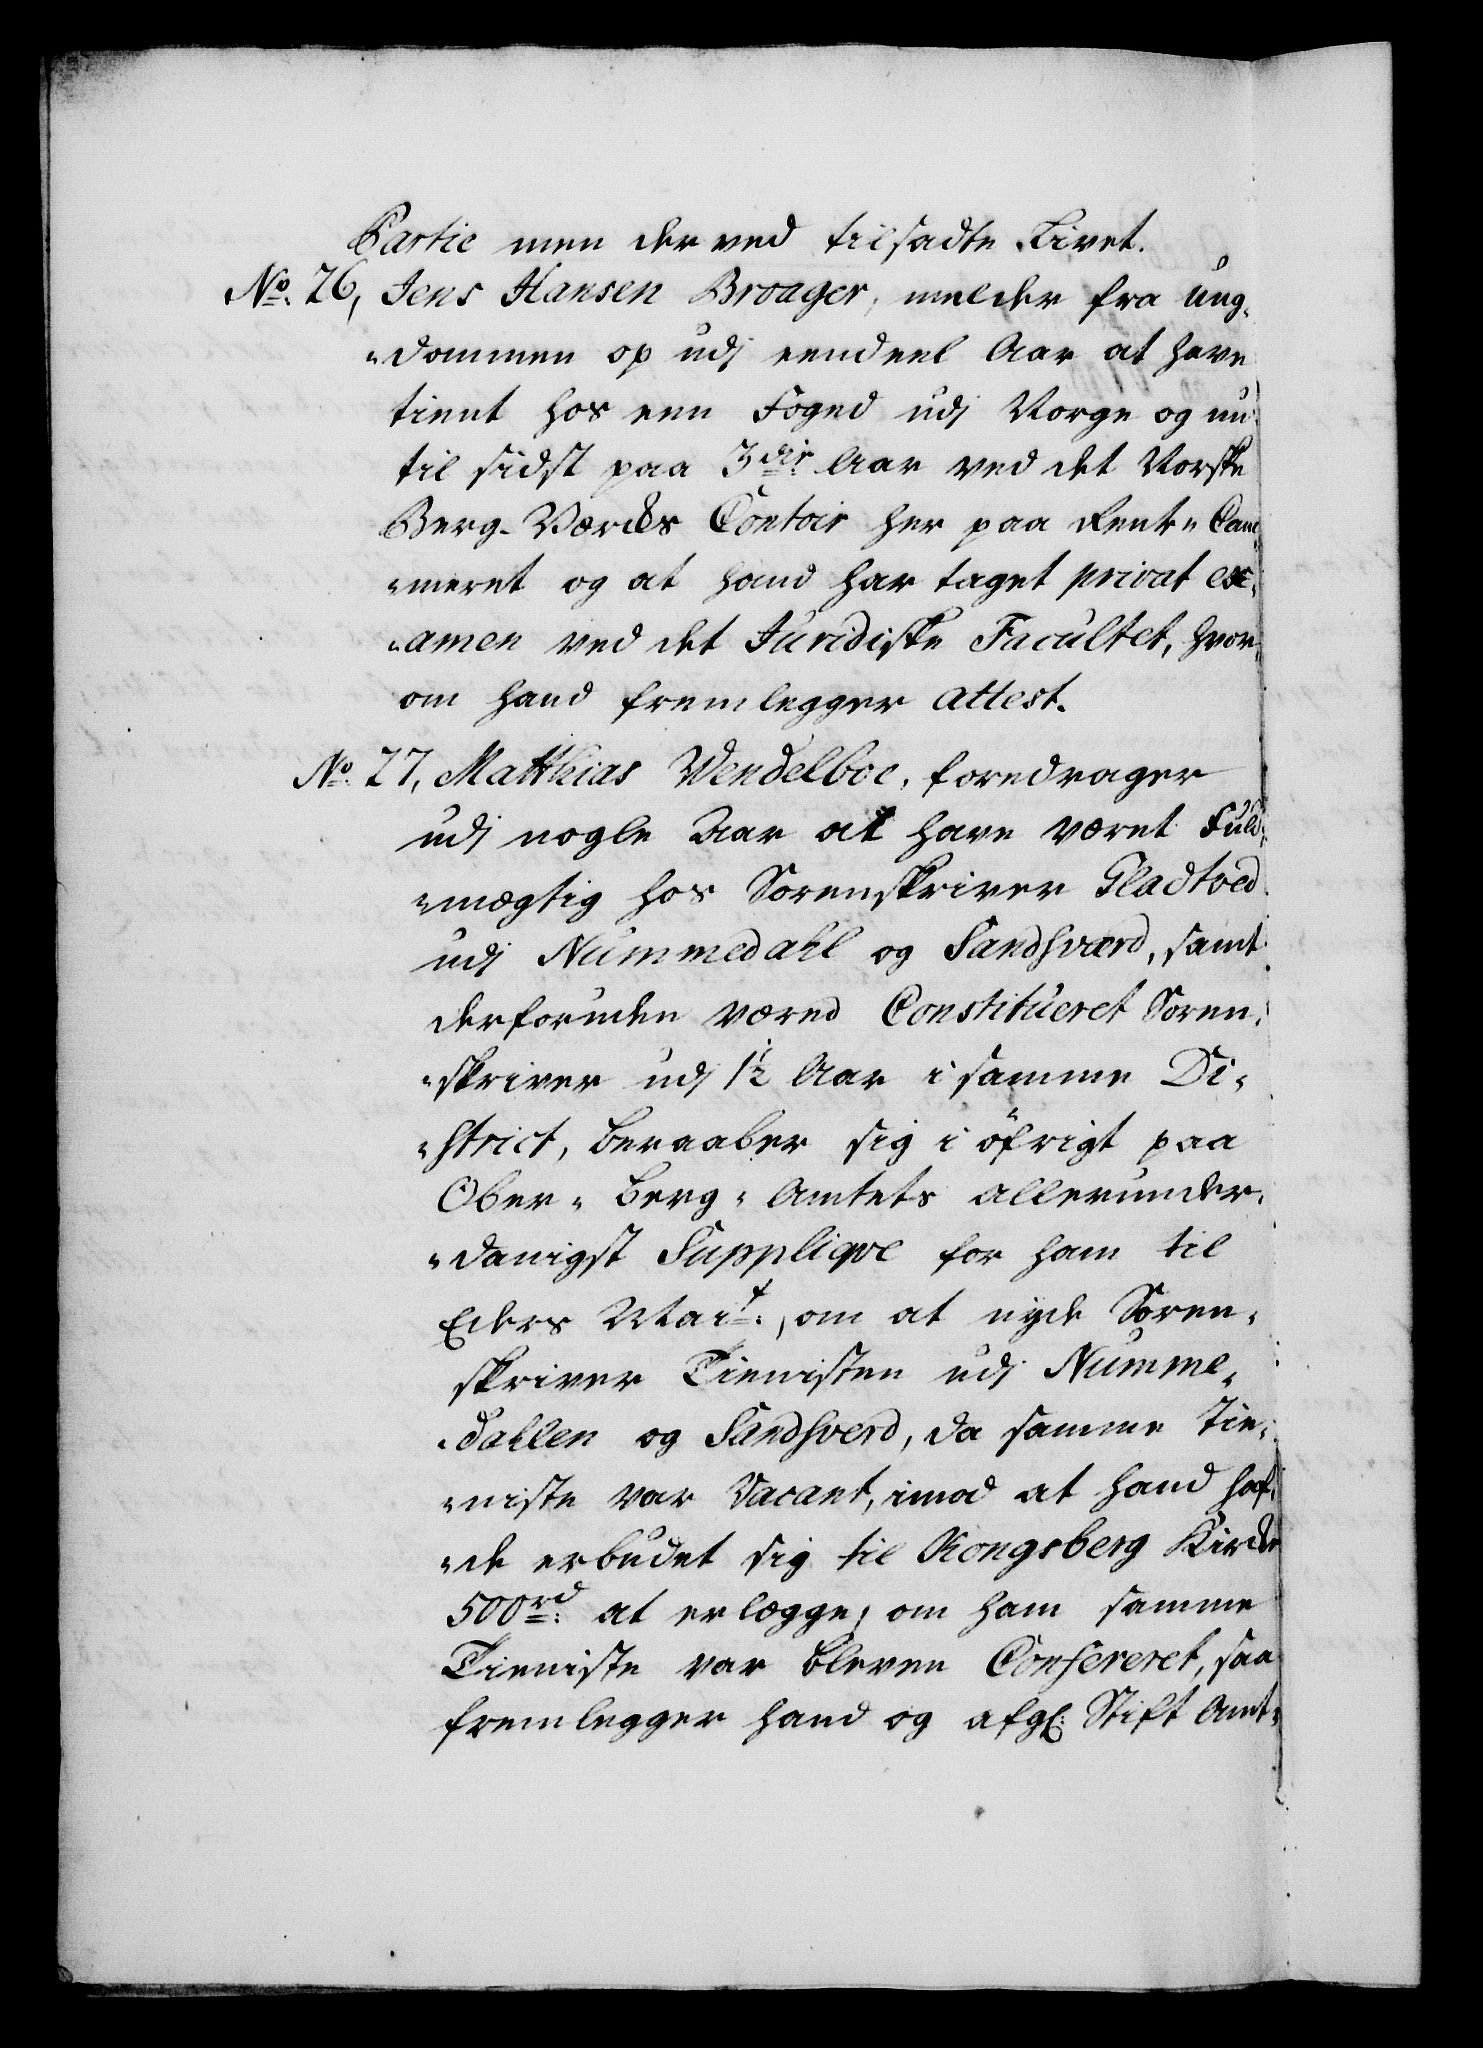 Partie men der ved tilsadte Livet.
No. 26, Jens Hansen Broager, melder fra ung-
-dommen op udj eendeel Aar at have
tient hos een Foged udj Norge og nu
til sidst paa 3die Aar ved det Norske
Berg-Værcks Contoir her paa Rente-Cam-
-meret og at hand har taget privat ex-
-amen ved det Juridiske Facultet, hvor-
om hand fremlegger attest.
No. 27, Matthias Wendelboe, foredrager
udj nogle Aar at have været Fuld-
-mægtig hos Sorenskriver Gladtved
udj Nummedahl og Sandsværd, samt
derforuden væred Constitueret Soren-
-skriver udj 1½ Aar i samme Di-
-strict, beraaber sig i öfrigt paa
Ober-Berg-Amtets allerunder-
-danigst Supplique for ham til
Eders Mait., om at nyde Soren-
skriver Tienisten udj Numme-
-dahlen og Sandsverd, da samme Tie-
-niste var Vacant, imod at hand haf-
-de erbudet sig til Kongsberg Kircke
500rd. at erlægge, om ham samme
Tieniste var bleven Confereret, saa
fremlegger hand og afgl. Stift Amt-